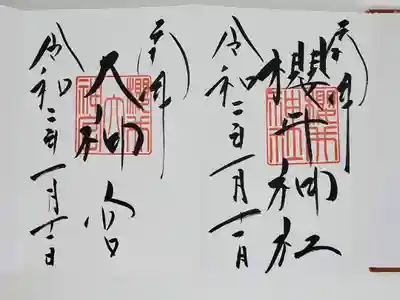 奉拝
櫻井神社
令和二年一月十一日
奉拝
大神宮
令和二年一月十一日